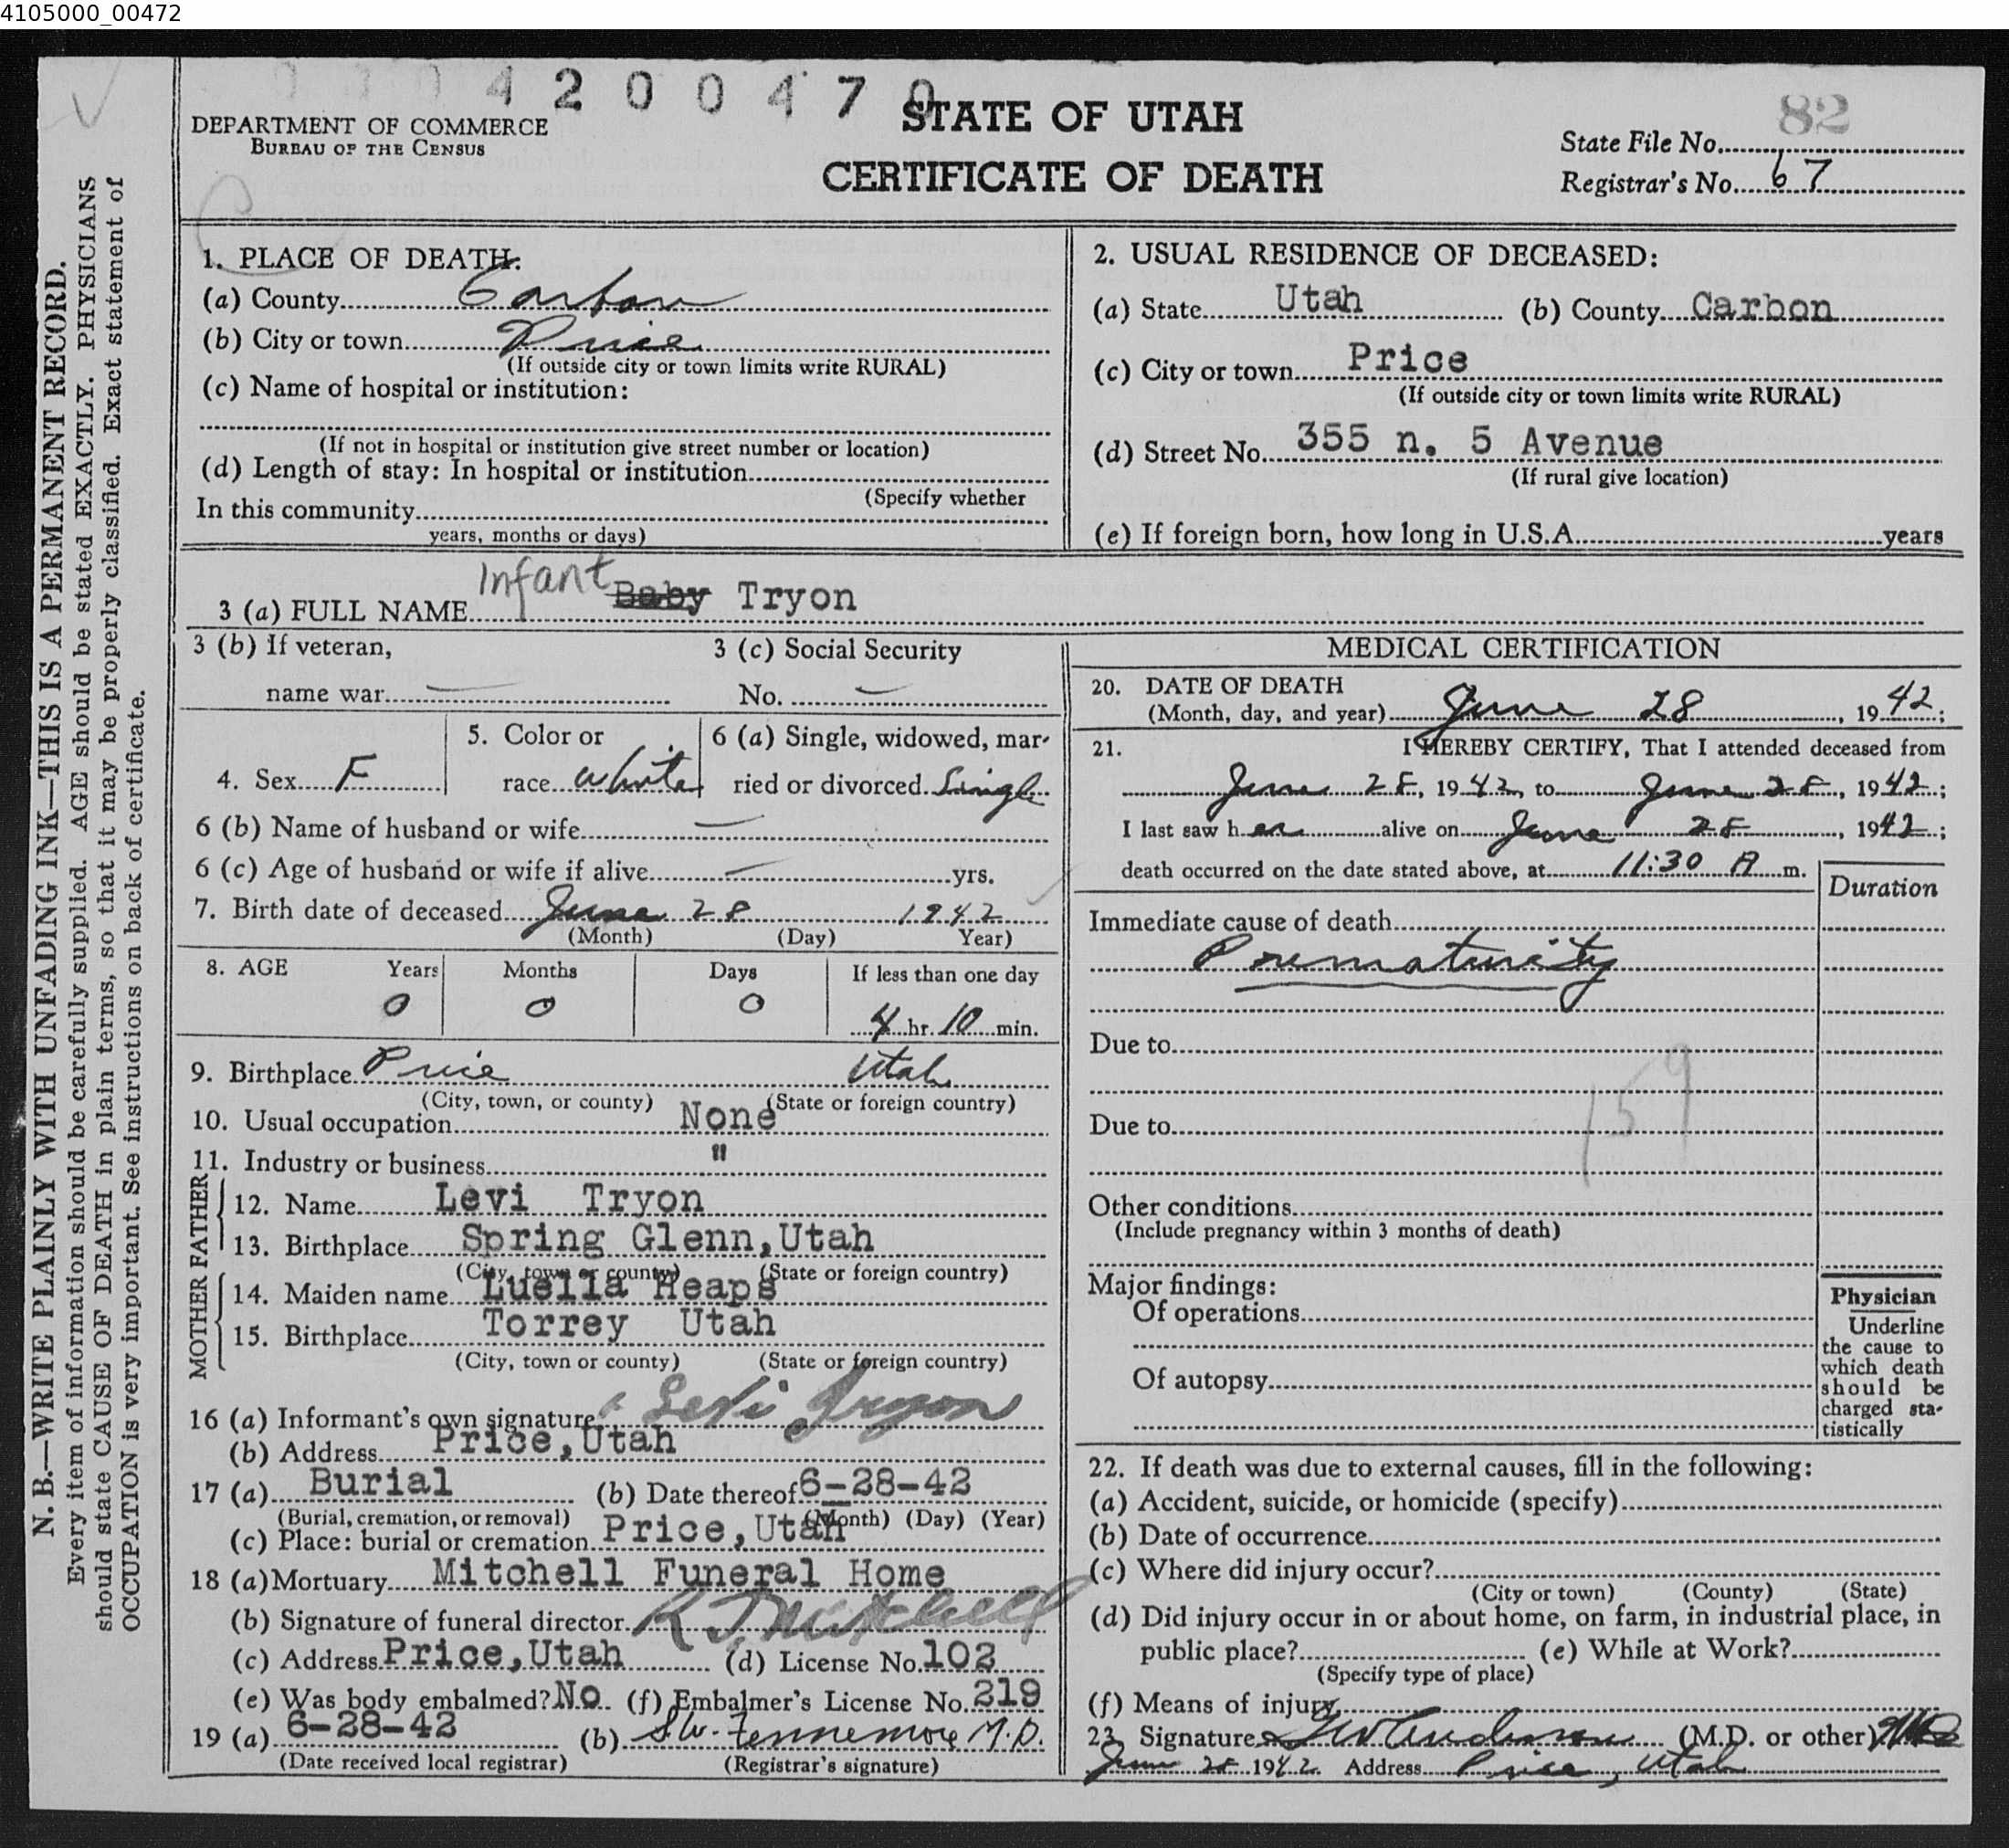 4105000_00472
4 2 0 0 4 7 0
DEPARTMENT OF COMMERCE
BUREAU OF THE CENSUS
STATE OF UTAH
CERTIFICATE OF DEATH
82
State File No.
Registrar's No. 67
N. B.—WRITE PLAINLY WITH UNFADING INK—THIS IS A PERMANENT RECORD.
Every item of information should be carefully supplied. AGE should be stated EXACTLY. PHYSICIANS
should state CAUSE OF DEATH in plain terms, so that it may be properly classified. Exact statement of
OCCUPATION is very important. See instructions on back of certificate.
1. PLACE OF DEATH:
(a) County Carbon
(b) City or town Price
(If outside city or town limits write RURAL)
(c) Name of hospital or institution:
(If not in hospital or institution give street number or location)
(d) Length of stay: In hospital or institution
(Specify whether
In this community
years, months or days)
2. USUAL RESIDENCE OF DECEASED:
(a) State Utah (b) County Carbon
(c) City or town Price
(If outside city or town limits write RURAL)
(d) Street No. 355 n. 5 Avenue
(If rural give location)
(e) If foreign born, how long in U.S.A. years
3 (a) FULL NAME Infant Baby Tryon
3 (b) If veteran,
name war —
3 (c) Social Security
No. —
4. Sex F
5. Color or
race White
6 (a) Single, widowed, mar-
ried or divorced Single
6 (b) Name of husband or wife —
6 (c) Age of husband or wife if alive — yrs.
7. Birth date of deceased June 28 1942
(Month) (Day) Year)
8. AGE Years Months Days If less than one day
0 0 0 4 hr. 10 min.
9. Birthplace Price Utah
(City, town, or county) (State or foreign country)
10. Usual occupation None
11. Industry or business "
FATHER
12. Name Levi Tryon
13. Birthplace Spring Glenn, Utah
(City, town or county) (State or foreign country)
MOTHER
14. Maiden name Luella Heaps
15. Birthplace Torrey Utah
(City, town or county) (State or foreign country)
16 (a) Informant's own signature Levi Tryon
(b) Address Price, Utah
17 (a) Burial (b) Date thereof 6-28-42
(Burial, cremation, or removal) (Month) (Day) (Year)
(c) Place: burial or cremation Price, Utah
18 (a) Mortuary Mitchell Funeral Home
(b) Signature of funeral director R J Mitchell
(c) Address Price, Utah (d) License No. 102
(e) Was body embalmed? No (f) Embalmer's License No. 219
19 (a) 6-28-42 (b) S.W. Fennemore M.D.
(Date received local registrar) (Registrar's signature)
MEDICAL CERTIFICATION
20. DATE OF DEATH
(Month, day, and year) June 28, 1942;
21. I HEREBY CERTIFY, That I attended deceased from
June 28, 1942, to June 28, 1942;
I last saw her alive on June 28, 1942;
death occurred on the date stated above, at 11:30 A m.
Duration
Immediate cause of death
Prematurity
Due to
159
Due to
Other conditions
(Include pregnancy within 3 months of death)
Major findings:
Of operations
Of autopsy
Physician
Underline
the cause to
which death
should be
charged sta-
tistically
22. If death was due to external causes, fill in the following:
(a) Accident, suicide, or homicide (specify)
(b) Date of occurrence
(c) Where did injury occur?
(City or town) (County) (State)
(d) Did injury occur in or about home, on farm, in industrial place, in
public place? (e) While at Work?
(Specify type of place)
(f) Means of injury
23. Signature Anderson (M.D. or other)
June 28 1942 Address Price, Utah